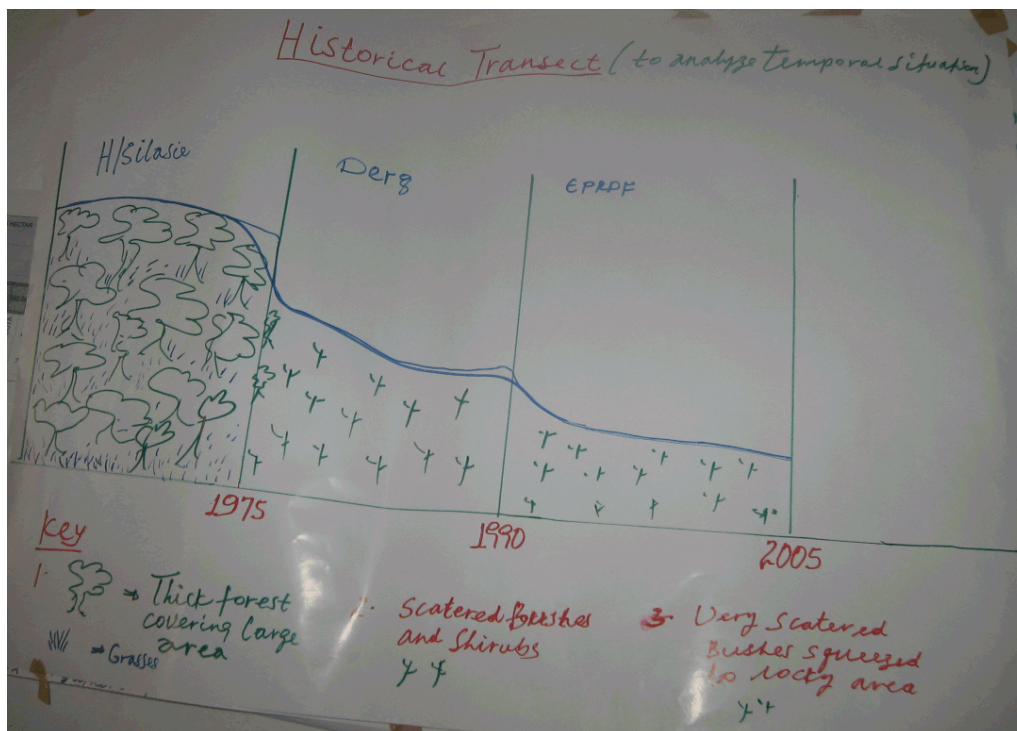 Historical Transect (to analyze temporal situation)
H/Silasie
Derg
EPRDF
1975
1990
2005
Key
1. → Thick forest
covering large
area
→ Grasses
2. Scatered bushes
and Shirubs
3. Very scatered
Bushes squeezed
to rocky area
HECTAR